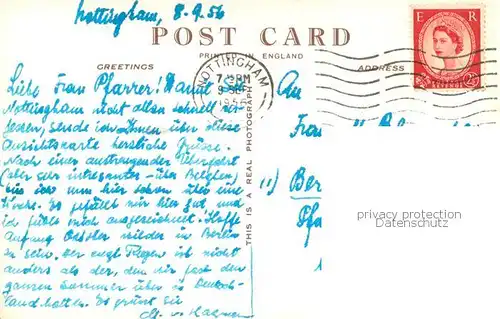 Nottingham, 8.9.56
POST CARD
PRINTED IN ENGLAND
GREETINGS
ADDRESS
E R
NOTTINGHAM
7 PM
9 SEP
1956
THIS IS A REAL PHOTOGRAPH
Liebe Frau Pfarrer! Damit Sie
Nottingham nicht allzu schnell ver-
gessen, sende ich Ihnen über diese
Ansichtskarte herzliche Grüsse.
Nach einer anstrengenden Überfahrt
(aber sehr interessanter - über Belgien)
bin ich nun hier schon über eine
Woche. Es gefällt mir hier gut und
ich fühle mich ausgezeichnet. Hoffe
Anfang Oktober wieder in Berlin
zu sein. Der engl. Regen ist nicht
anders als der, den wir fast den
ganzen Sommer über in Deutsch-
land hatten. Es grüsst Sie
An
Frau
11) Ber
Pfa
privacy protection
www.ansichtskarten-center.de